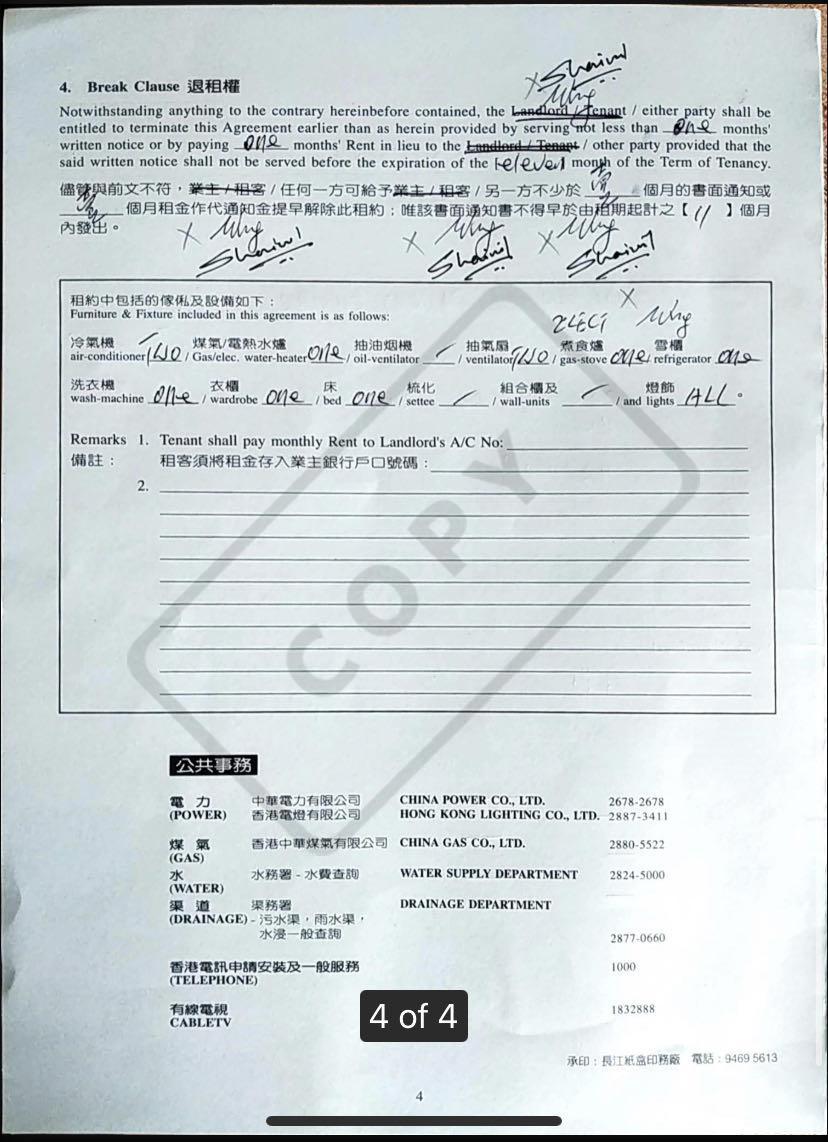 4. Break Clause 退租權
Notwithstanding anything to the contrary hereinbefore contained, the Landlord / Tenant / either party shall be
entitled to terminate this Agreement earlier than as herein provided by serving not less than one months'
written notice or by paying one months' Rent in lieu to the Landlord / Tenant / other party provided that the
said written notice shall not be served before the expiration of the eleven month of the Term of Tenancy.
儘管與前文不符，業主 / 租客 / 任何一方可給予業主 / 租客 / 另一方不少於 壹 個月的書面通知或
壹 個月租金作代通知金提早解除此租約；唯該書面通知書不得早於由租期起計之【 11 】個月
內發出。
租約中包括的傢俬及設備如下：
Furniture & Fixture included in this agreement is as follows:
ELECT
冷氣機 煤氣/電熱水爐 抽油烟機 抽氣扇 煮食爐 雪櫃
air-conditioner TWO / Gas/elec. water-heater one / oil-ventilator / ventilator TWO / gas-stove one / refrigerator one
洗衣機 衣櫃 床 梳化 組合櫃及 燈飾
wash-machine one / wardrobe one / bed one / settee / wall-units / and lights ALL 。
Remarks 1. Tenant shall pay monthly Rent to Landlord's A/C No:
備註： 租客須將租金存入業主銀行戶口號碼：
2.
COPY
公共事務
電力 中華電力有限公司 CHINA POWER CO., LTD. 2678-2678
(POWER) 香港電燈有限公司 HONG KONG LIGHTING CO., LTD. 2887-3411
煤氣 香港中華煤氣有限公司 CHINA GAS CO., LTD. 2880-5522
(GAS)
水 水務署 - 水費查詢 WATER SUPPLY DEPARTMENT 2824-5000
(WATER)
渠道 渠務署 DRAINAGE DEPARTMENT
(DRAINAGE) - 污水渠，雨水渠，
水浸一般查詢 2877-0660
香港電訊申請安裝及一般服務 1000
(TELEPHONE)
有線電視 1832888
CABLETV
4 of 4
承印：長江紙盒印務廠 電話：9469 5613
4